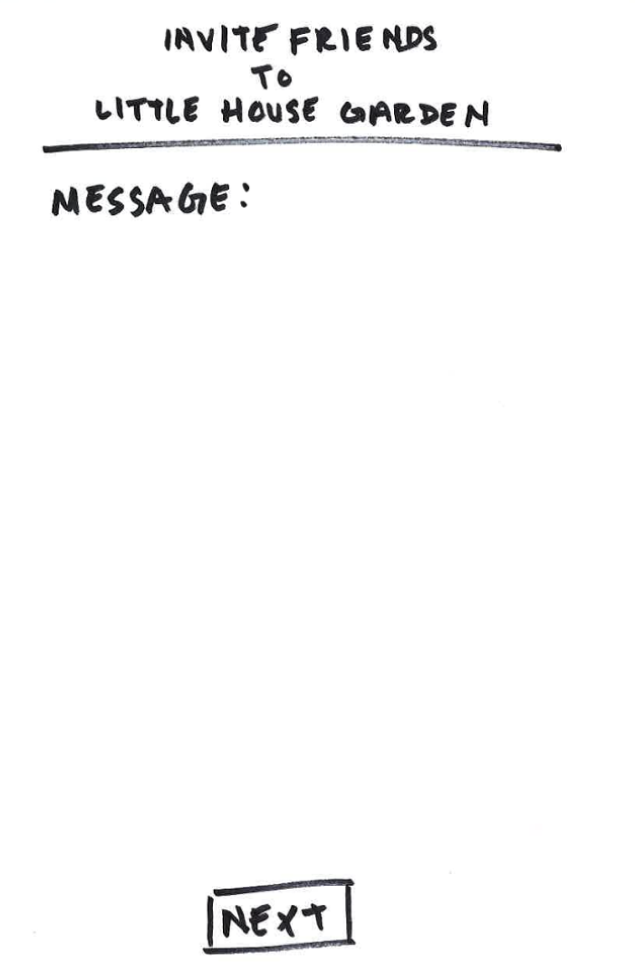 INVITE FRIENDS
TO
LITTLE HOUSE GARDEN
MESSAGE:
NEXT